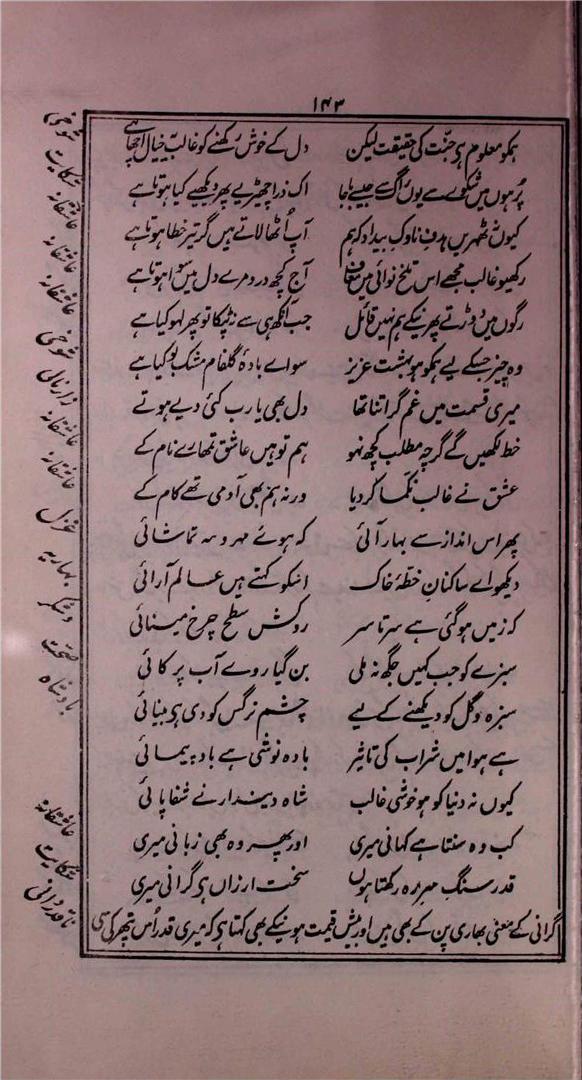 ۱۴۳
ہمکو معلوم ہی جنّت کی حقیقت لیکن دل کے خوش رکھنے کو غالب یہ خیال اچھا ہے
پُر ہوں میں شکوے سے یوں راگ سے جیسے باجا اک ذرا چھیڑیے پھر دیکھیے کیا ہوتا ہے
کیوں نہ ٹھہریں ہدفِ ناوکِ بیداد کہ ہم آپ اُٹھا لاتے ہیں گر تیر خطا ہوتا ہے
رکھیو غالب مجھے اس تلخ نوائی میں معاف آج کچھ درد مرے دل میں سوا ہوتا ہے
رگوں میں دوڑتے پھرنیکے ہم نہیں قائل جب آنکھ ہی سے نہ ٹپکا تو پھر لہو کیا ہے
وہ چیز جسکے لیے ہمکو ہو بہشت عزیز سواے بادۂ گلفام مشک بو کیا ہے
میری قسمت میں غم گر اتنا تھا دل بھی یا رب کئی دیے ہوتے
خط لکھیں گے گرچہ مطلب کچھ نہو ہم تو ہیں عاشق تمھارے نام کے
عشق نے غالب نکما کر دیا ورنہ ہم بھی آدمی تھے کام کے
پھر اس انداز سے بہار آئی کہ ہوئے مہر و مہ تماشائی
دیکھو اے ساکنانِ خطّۂ خاک اسکو کہتے ہیں عالم آرائی
کہ زمیں ہو گئی ہے سر تا سر روکش سطحِ چرخِ مینائی
سبزے کو جب کہیں جگہ نہ ملی بن گیا روے آب پر کائی
سبزہ و گل کو دیکھنے کے لیے چشم نرگس کو دی ہی بینائی
ہے ہوا میں شراب کی تاثیر بادہ نوشی ہے باد پیمائی
کیوں نہ دنیا کو ہو خوشی غالب شاہ دیندار نے شفا پائی
کب وہ سنتا ہے کہانی میری اور پھر وہ بھی زبانی میری
قدر سنگِ سرِ رہ رکھتا ہوں سخت ارزاں ہی گرانی میری
اگرانی کے معنی بھاری پن کے بھی ہیں اور بیش قیمت ہونیکے بھی کہتا ہی کہ میری قدر اُس پتھر کی سی
شوخی
شکایت
عاشقانہ
عاشقانہ
عاشقانہ
شوخی
زار نالی
عاشقانہ
عاشقانہ
غزل
بہاریہ
و شکر
صحت
بادشاہ
عاشقانہ
شکایت
ناقدردانی